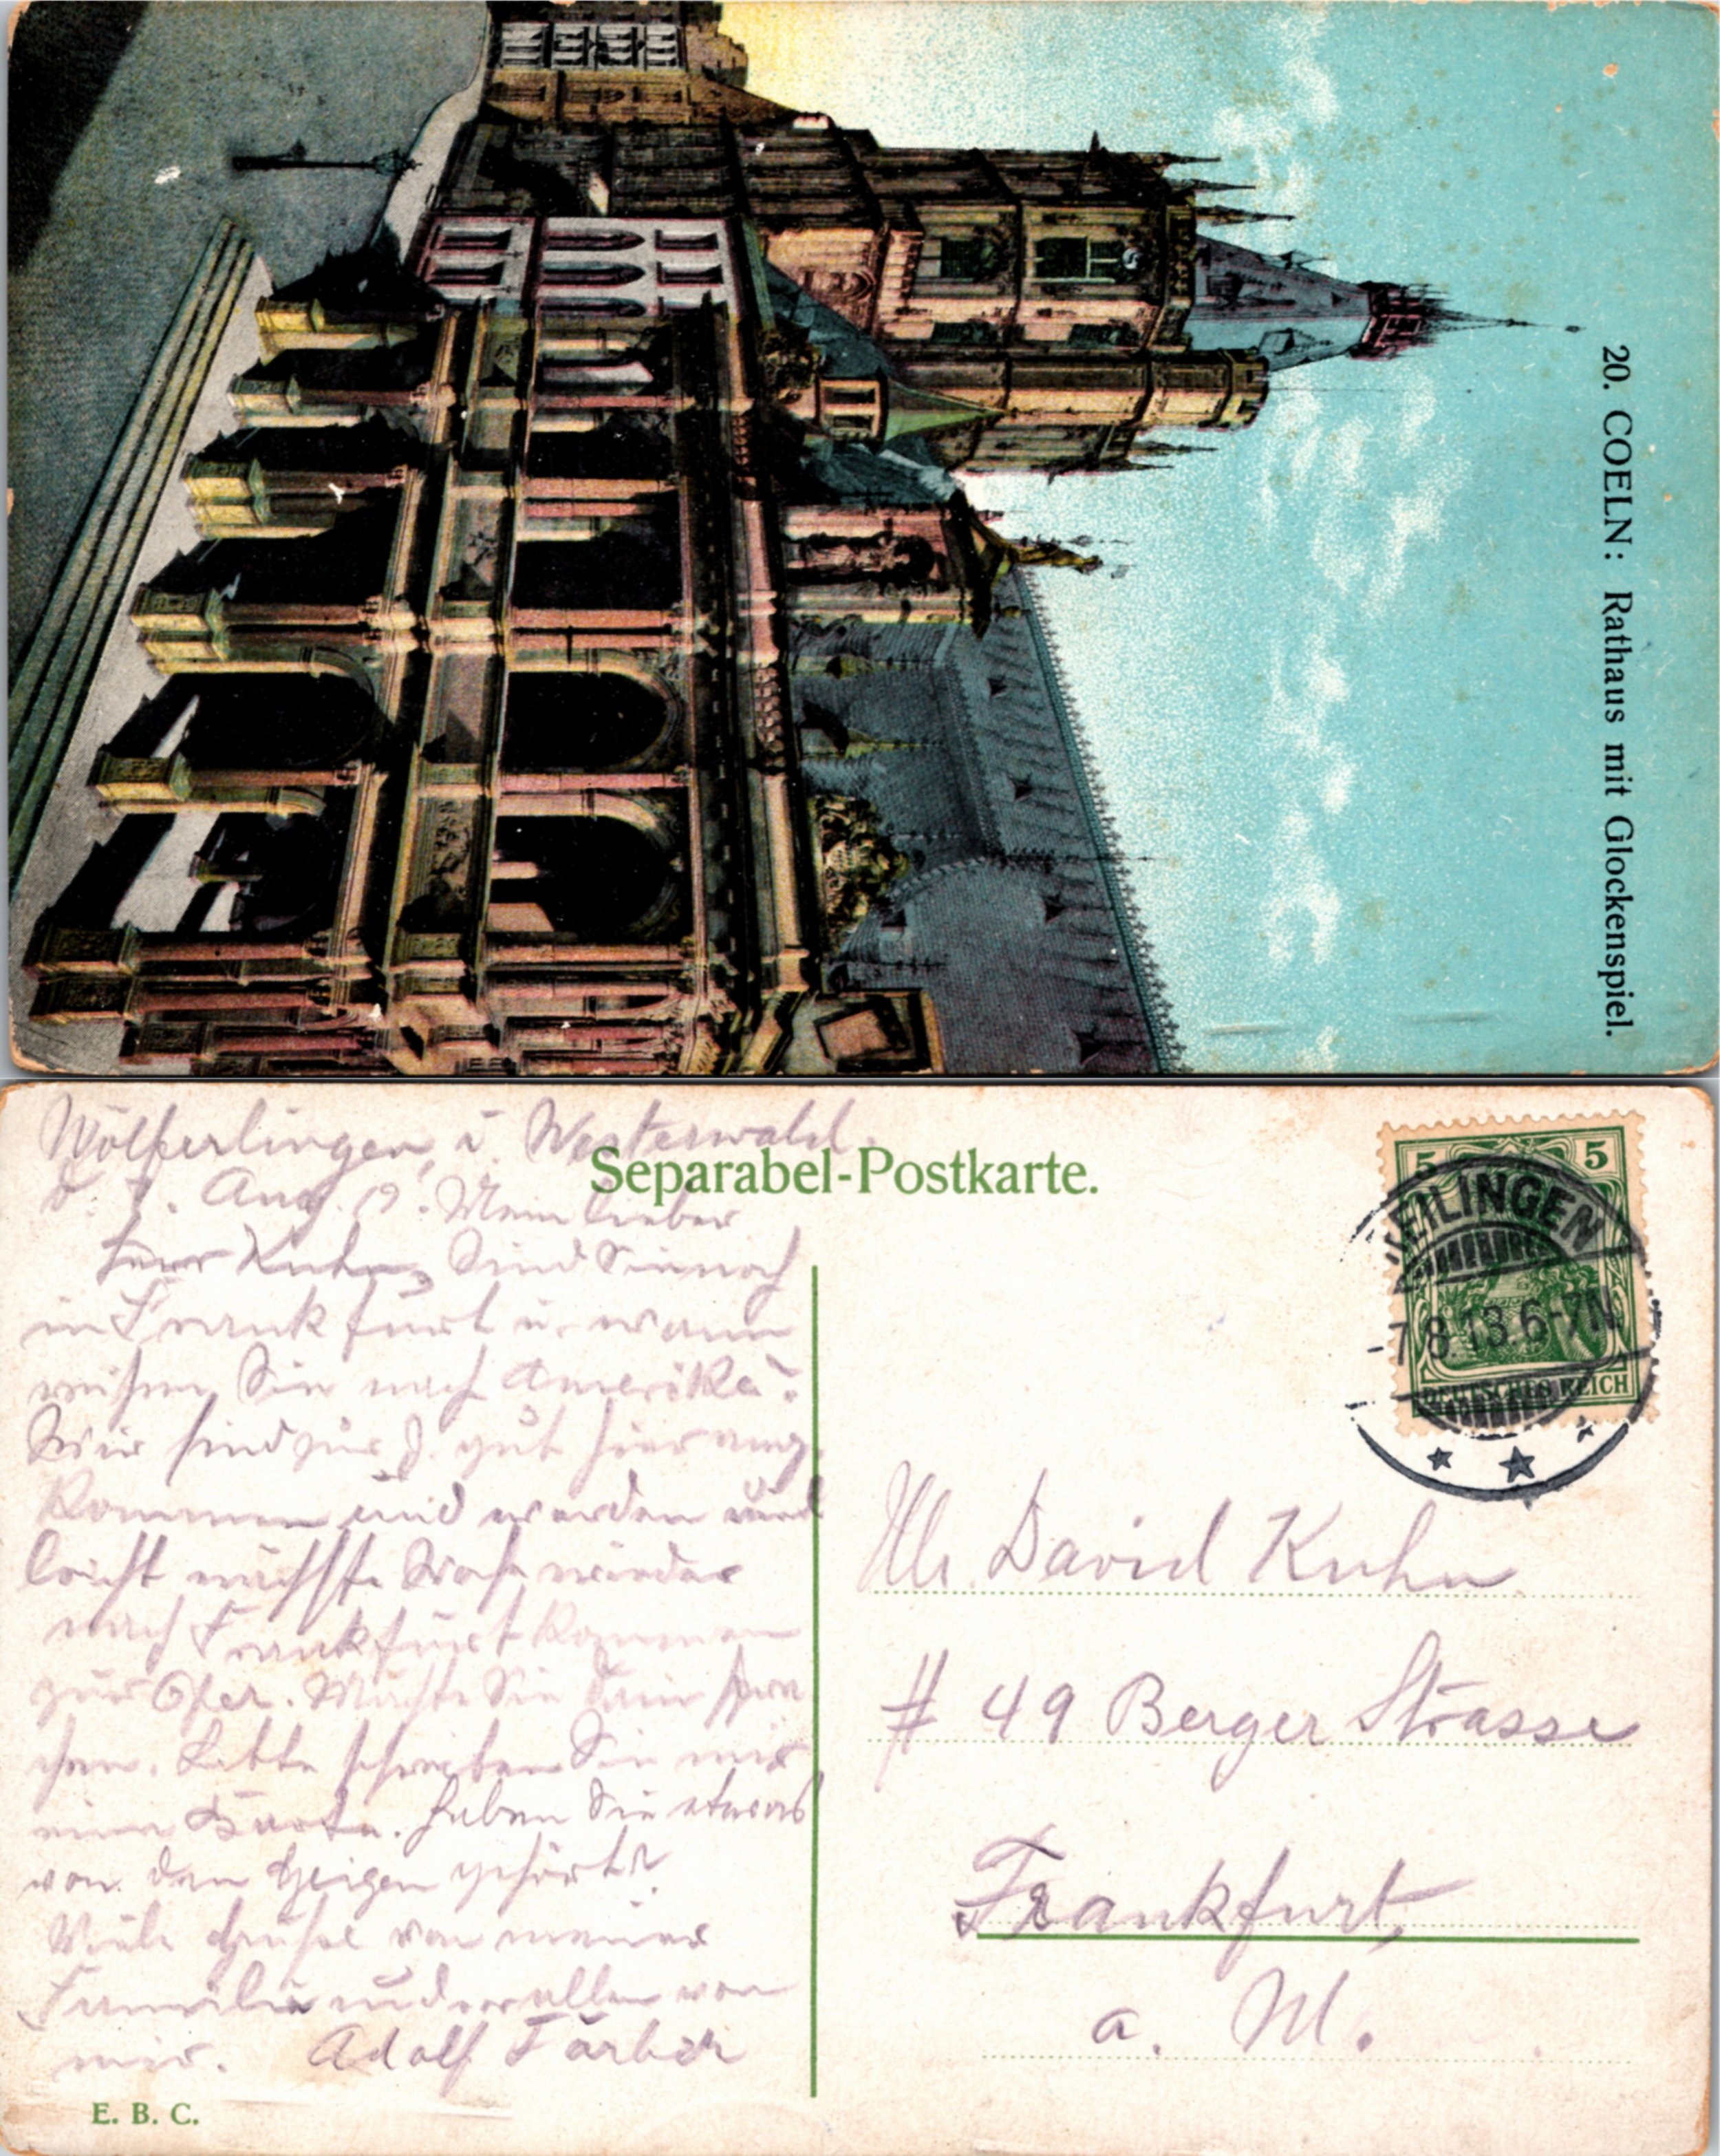 20. COELN: Rathaus mit Glockenspiel.
Separabel-Postkarte.
Wölferlingen, i Westerwald.
d. 7. Aug. 19. Mein lieber
Herr Kuhn, Sind Sie noch
in Frankfurt u. wann
reisen Sie nach Amerika.
Wir sind gut hier ange
kommen und werden viel
leicht nächste Woche wieder
nach Frankfurt kommen
zur Oper. Möchte Sie dann spre
chen. Bitte schreiben Sie mir
eine Karte. Haben Sie etwas
von den Geigen gehört?
Viele Grüße von meiner
Familie und vor allem von
mir. Adolf Färber
E. B. C.
5 5
EILINGEN
-7.8.13.6-7N
DEUTSCHES REICH
Mr. David Kuhn
# 49 Berger Strasse
Frankfurt,
a. M.